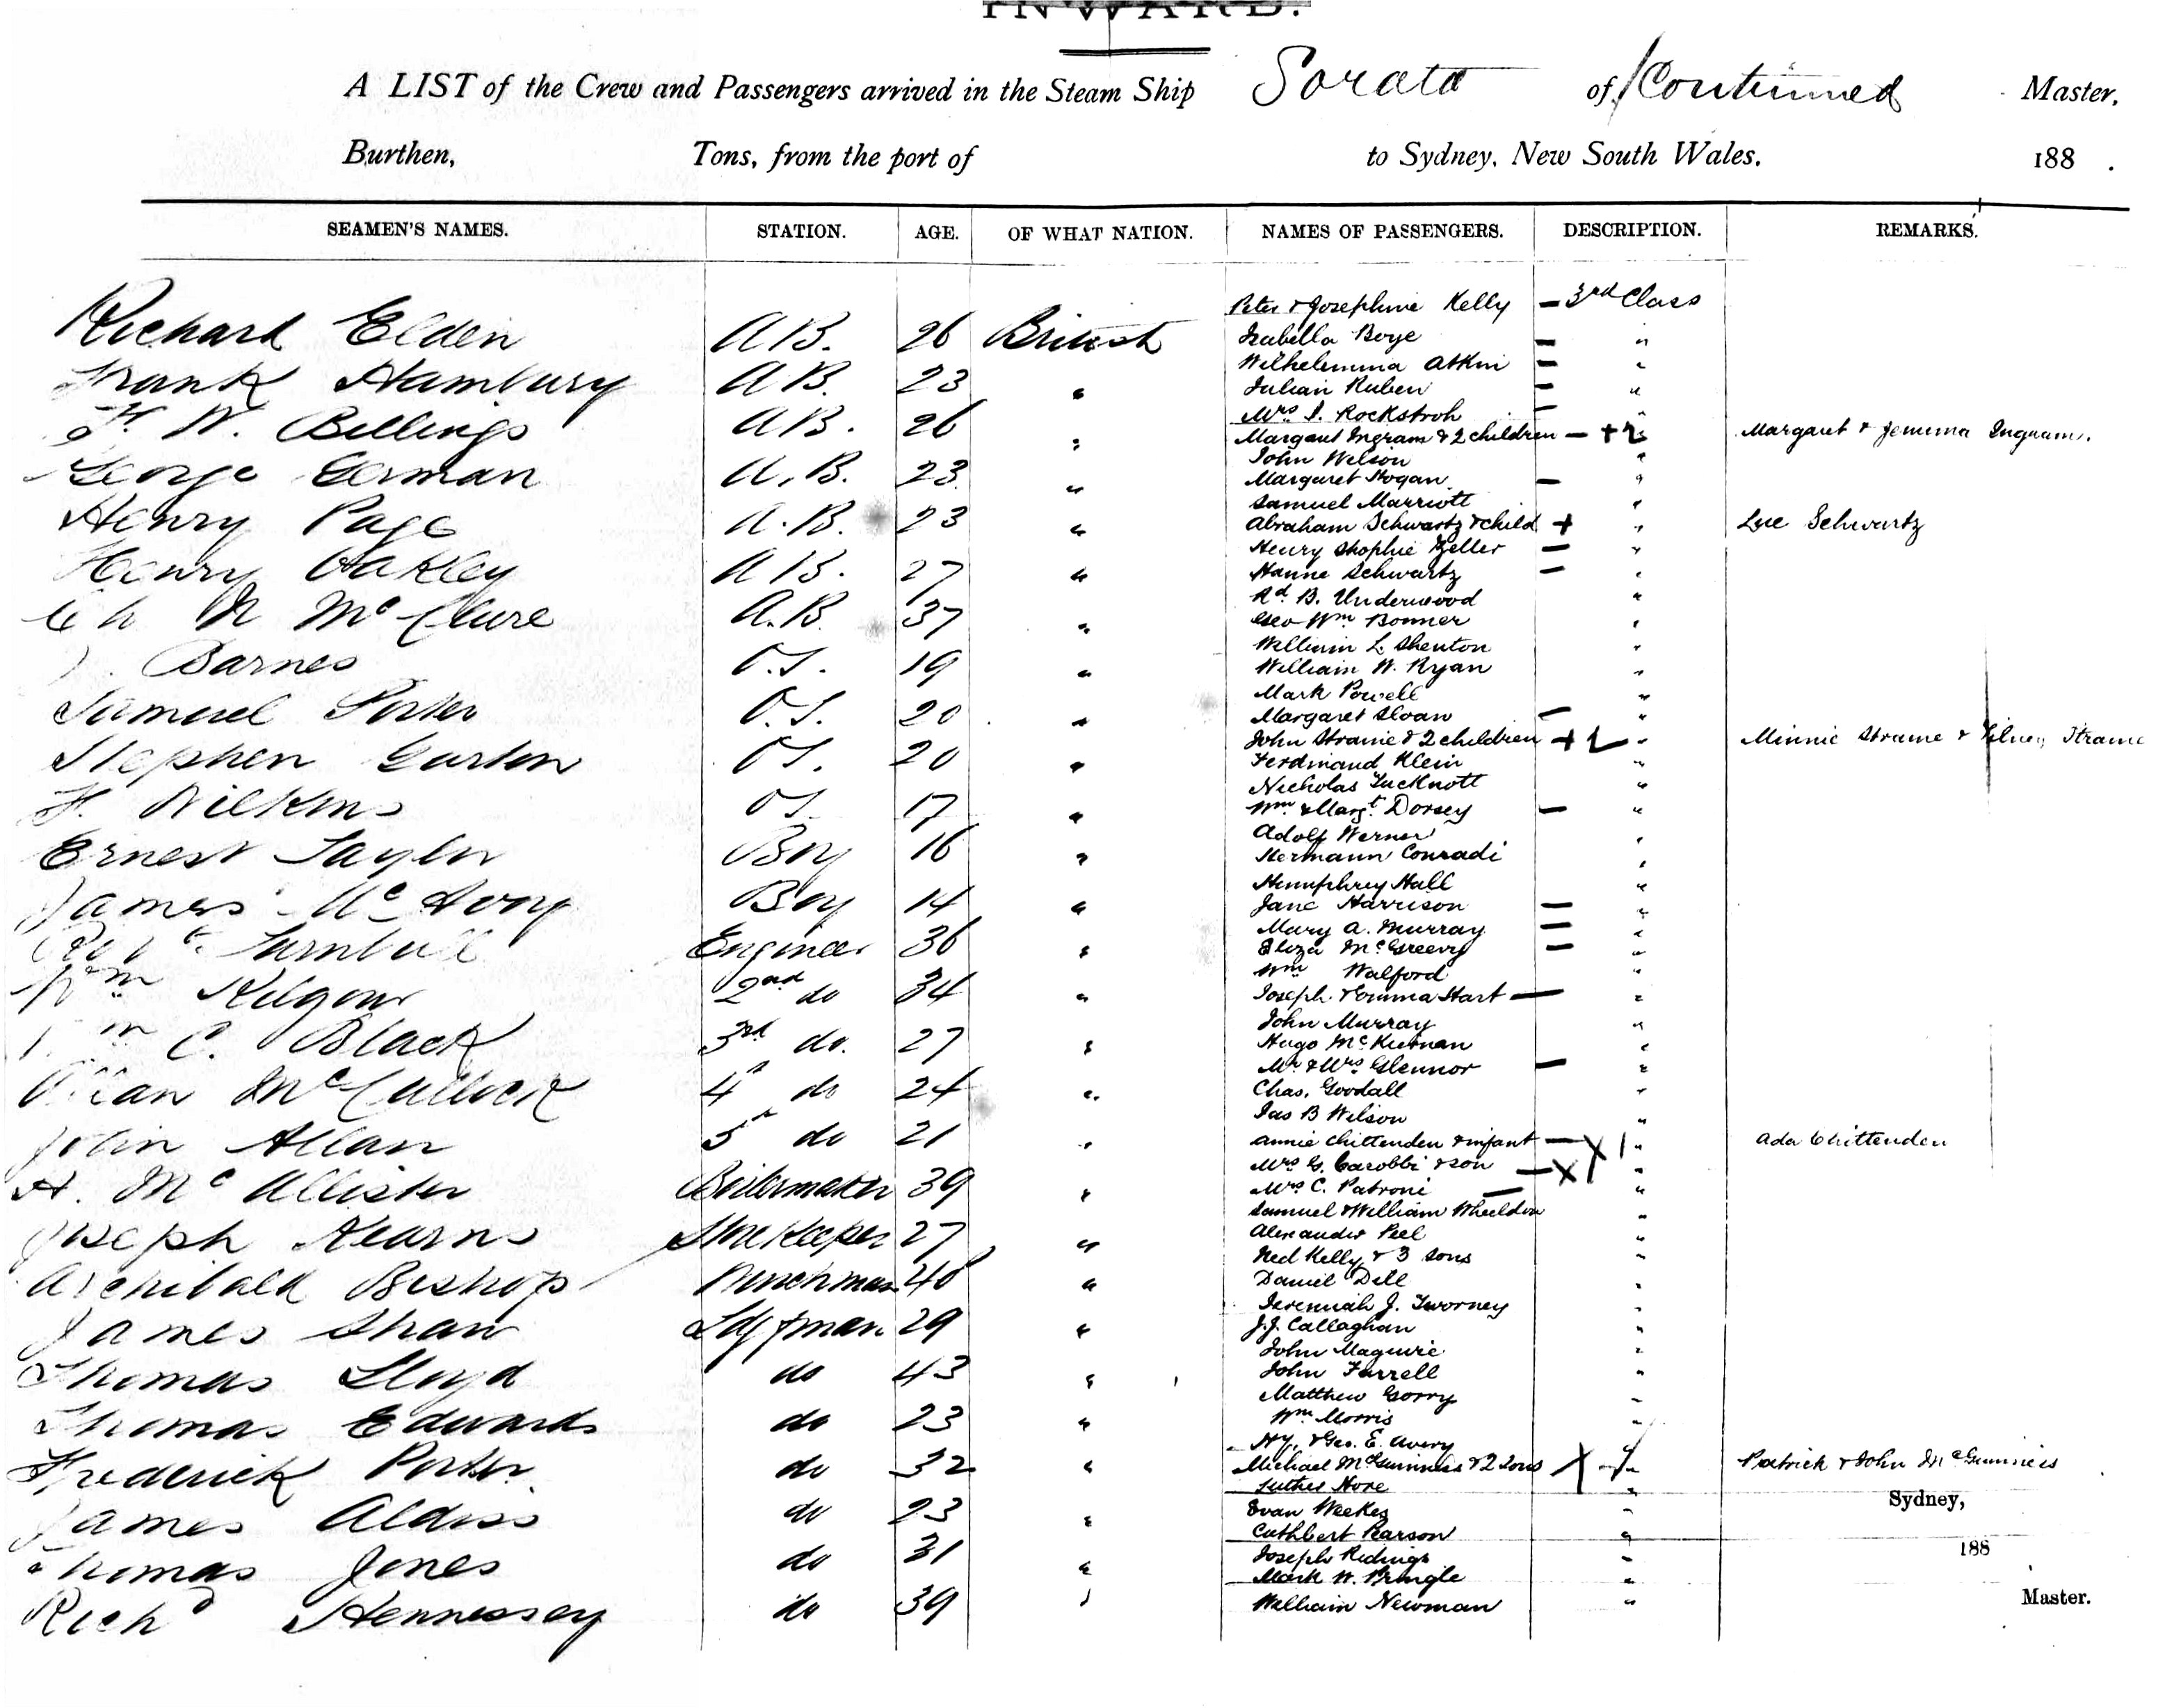 INWARD.
A LIST of the Crew and Passengers arrived in the Steam Ship Sorata of Continued Master,
Burthen, Tons, from the port of to Sydney, New South Wales, 188 .
SEAMEN'S NAMES. STATION. AGE. OF WHAT NATION. NAMES OF PASSENGERS. DESCRIPTION. REMARKS.
Peter & Josephine Kelly — 3rd Class
Richard Elden A B. 26 British Isabella Boye — "
Wilhelmina Atkin — "
Frank Hambury A B. 23 " Julian Ruben — "
Mrs I. Rockstroh — "
F. W. Billings A B. 26 " Margaret Ingram & 2 children — + 2 Margaret & Jemima Ingram.
John Wilson "
George German A. B. 23 " Margaret Hogan — "
Samuel Marriott "
Henry Page A. B. 23 " Abraham Schwartz & child + " Schwartz
Henry Zeller — "
Henry Oakley A B. 27 " Hanne Schwartz — "
Rd. B. Underwood "
McClure A. B. 37 " Geo Wm Bonner "
William L. Shenton "
Barnes O.S. 19 " William W. Ryan "
Mark Powell "
Samuel Porter O.S. 20 " Margaret Sloan — "
John Strame & 2 children + 2 " Minnie Strame & Strame
Stephen Garton O S. 20 " Ferdinand Klein "
Nicholas Tucknott "
H. Wilkins O S. 17 " Wm & Margt. Dorsey — "
Adolf Werner "
Ernest Taylor Boy 16 " Hermann Conradi "
Humphrey Hall "
James McAvoy Boy 14 " Jane Harrison — "
Mary A. Murray — "
Robt. Turnbull Engineer 36 " Eliza McGreevy — "
Wm Walford "
Wm Kilgour 2nd do 34 " Joseph & Emma Hart — "
John Murray "
Wm C. Black 3rd do. 27 " Hugo McKiernan "
Mr & Mrs Glennor — "
Allan McCulloch 4th do 24 " Chas. Goodall "
Jas B Wilson "
John Allan 5th do 21 " Annie Chittenden & infant — X 1 " Ada Chittenden
Mrs G. Carobbi & son — X 1 "
A. McAllister Boilermaker 39 " Mrs C. Patroni — "
Samuel & William Wheeldon "
Joseph Kearns Storekeeper 27 " Alexander Peel "
Ned Kelly & 3 sons "
Archibald Bishop Winchman 40 " Daniel Dell "
Jeremiah J. Tworney "
James Shaw 29 " J.J. Callaghan "
John Maguire "
Thomas Lloyd do 43 " John Farrell "
Matthew Gorry "
Thomas Edwards do 23 " Wm. Morris "
Hy. & Geo. E. Avery "
Frederick Porter do 32 " Michael McGuinness & 2 sons X " Patrick & John McGuinness
Luther Hore "
Sydney,
James Aldiss do 23 " Evan Weekes "
Cuthbert Pearson "
188
Thomas Jones do 31 " Joseph Ridings "
Mark W. Pringle "
Master.
Richd Hennessey do 39 " William Newman "